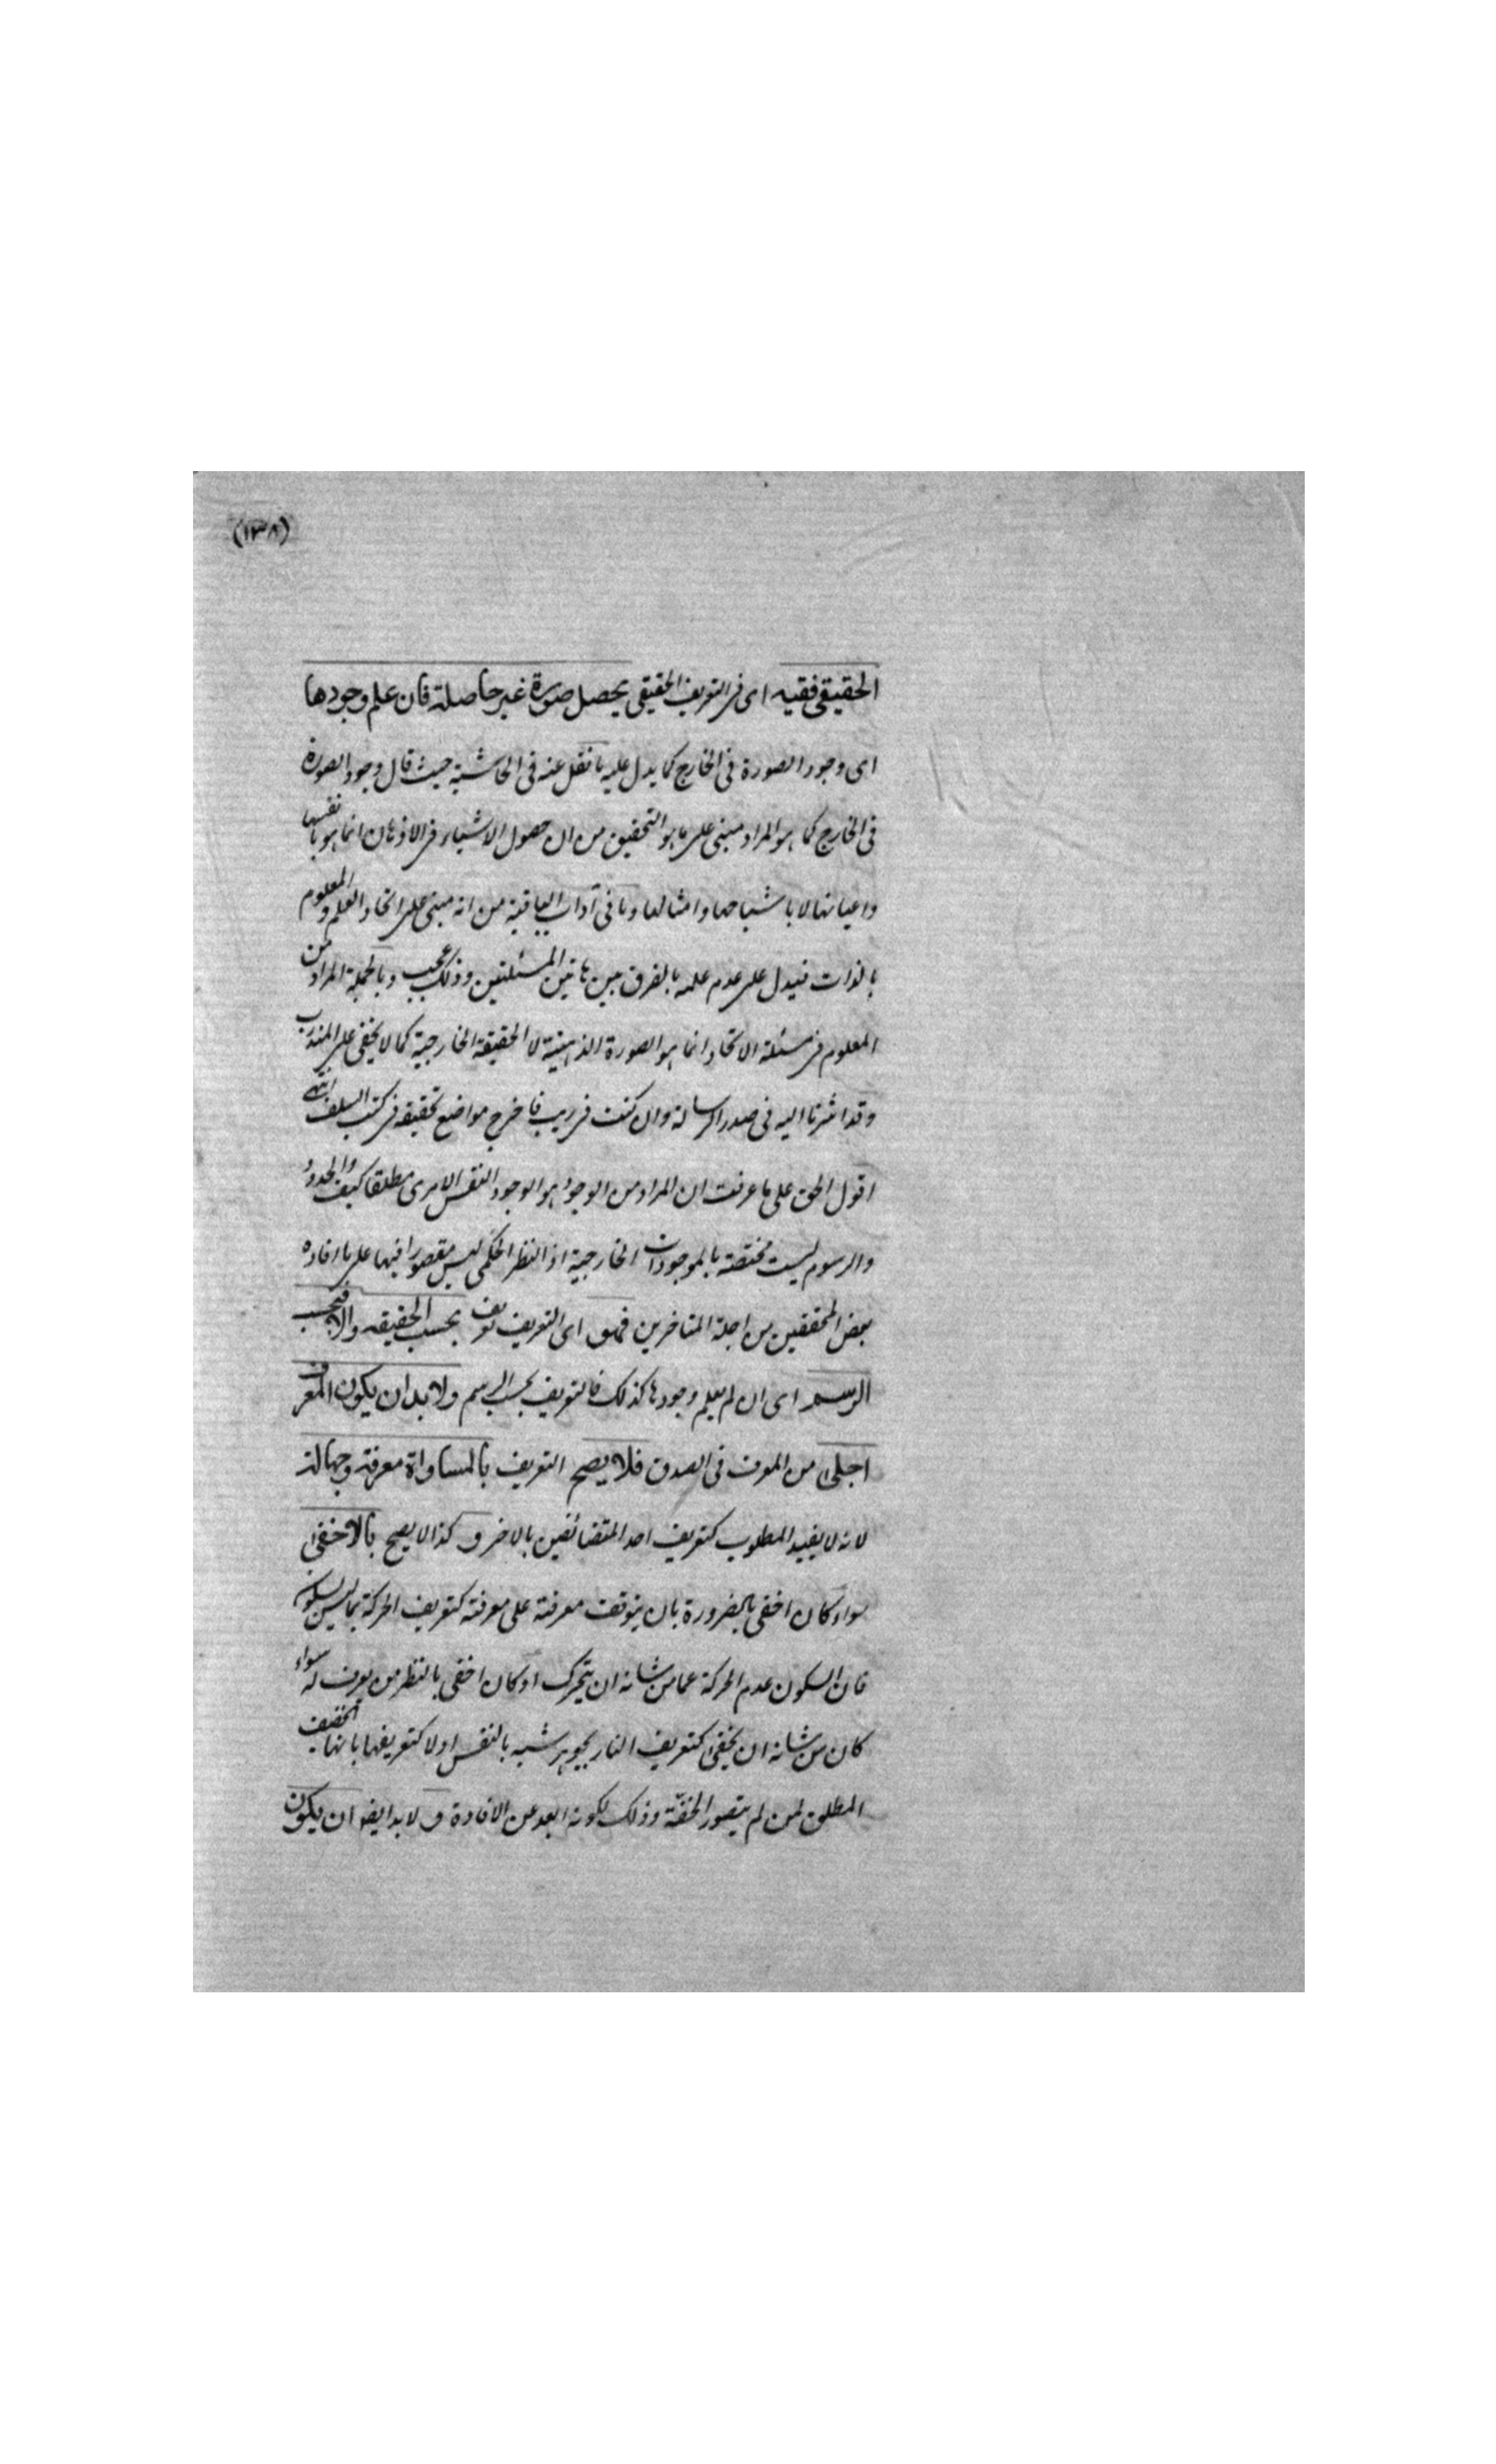 (١٣٨)
الحقيقى ففيه اى فى التعريف الحقيقى يحصل صورة غير حاصلة فان علم وجودها
اى وجود الصورة فى الخارج كما يدل عليه ما نقل عنه فى الحاشية حيث قال وجود الصورة
فى الخارج كما هو المراد مبنى على ما هو التحقيق من ان حصول الاشياء فى الاذهان انما هو بانفسها
واعيانها لا باشباحها وامثالها وما فى آداب الباقية من انه مبنى على اتحاد العلم والمعلوم
بالذات فيدل على عدم علمه بالفرق بين هاتين المسئلتين وذلك عجيب وبالجملة المراد من
المعلوم فى مسئلة الاتحاد انما هو الصورة الذهنية لا الحقيقة الخارجية كما لا يخفى على المتدرب
وقد اشرنا اليه فى صدر الرسالة وان كنت فى ريب فاخرج مواضع تحقيقه فى كتب السلف انتهى
اقول الحق على ما عرفت ان المراد من الوجود هو الوجود النفس الامرى مطلقا كيف والحدود
والرسوم ليست مختصة بالموجودات الخارجية اذ النظر الحكمى ليس مقصورا فيها على ما افاده
بعض المحققين من اجلة المتاخرين فهو اى التعريف تعريف بحسب الحقيقه والا فبحسب
الرسم اى ان لم يعلم وجودها كذلك فالتعريف بحسب الرسم ولا بد ان يكون المعرف
اجلى من المعرف فى الصدق فلا يصح التعريف بالمساواة معرفة وجهالة
لانه لا يفيد المطلوب كتعريف احد المتضائفين بالاخر و كذا لا يصح بالاخفى
سواء كان اخفى بالضرورة بان يتوقف معرفته على معرفته كتعريف الحركة بما ليس بسكون
فان السكون عدم الحركة عما من شانه ان يتحرك او كان اخفى بالنظر من يعرف له سواء
كان من شانه ان يخفى كتعريف النار بجوهر شبيه بالنفس او لا كتعريفها بانها الخفيف
المطلق لمن لم يتصور الخفة وذلك لكونه ابعد عن الافادة و لا بد ايضا ان يكون